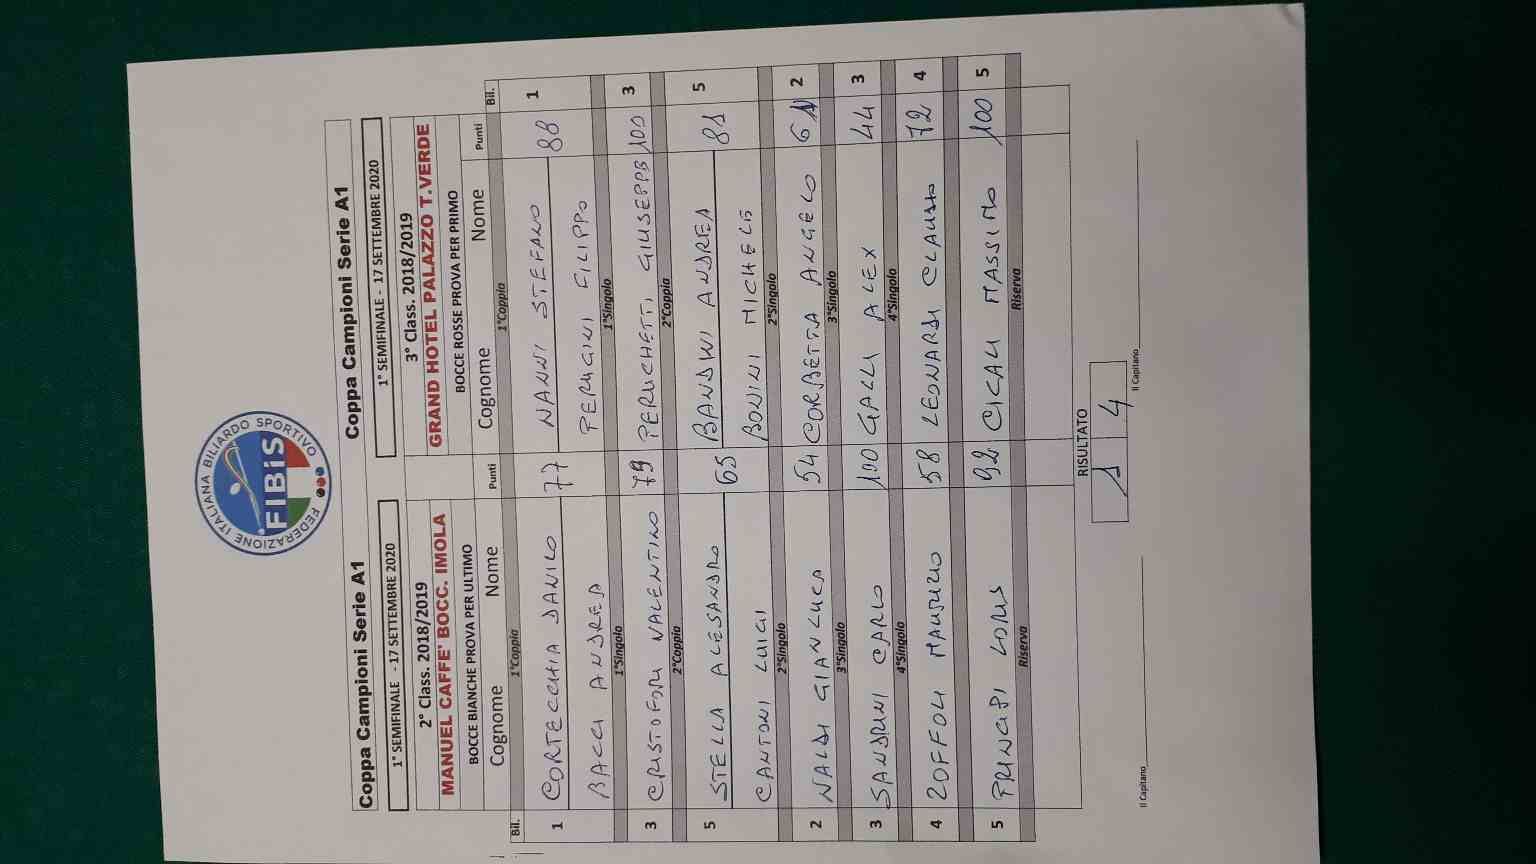 FEDERAZIONE ITALIANA BILIARDO SPORTIVO
FIBiS
Coppa Campioni Serie A1 Coppa Campioni Serie A1
1° SEMIFINALE - 17 SETTEMBRE 2020 1° SEMIFINALE - 17 SETTEMBRE 2020
2° Class. 2018/2019 3° Class. 2018/2019
MANUEL CAFFE' BOCC. IMOLA GRAND HOTEL PALAZZO T.VERDE
BOCCE BIANCHE PROVA PER ULTIMO BOCCE ROSSE PROVA PER PRIMO
Bil. Cognome Nome Punti Cognome Nome Punti Bil.
1°Coppia 1°Coppia
1 CORTECCHIA DANILO 77 NANNI STEFANO 88 1
BACCI ANDREA PERUGINI FILIPPO
1°Singolo 1°Singolo
3 CRISTOFORI VALENTINO 79 PERUCHETTI GIUSEPPE 101 3
2°Coppia 2°Coppia
5 STELLA ALESANDRO 65 BANDINI ANDREA 81 5
CANTONI LUIGI BONINI MICHELE
2°Singolo 2°Singolo
2 NALDI GIANLUCA 54 CORBETTA ANGELO 61 2
3°Singolo 3°Singolo
3 SANDRINI CARLO 100 GALLI ALEX 44 3
4°Singolo 4°Singolo
4 ZOFFOLI MAURIZIO 58 LEONARDI CLAUDIO 72 4
5 PRINCIPI LORIS 92 CICALI MASSIMO 100 5
Riserva Riserva
RISULTATO
1 4
Il Capitano Il Capitano